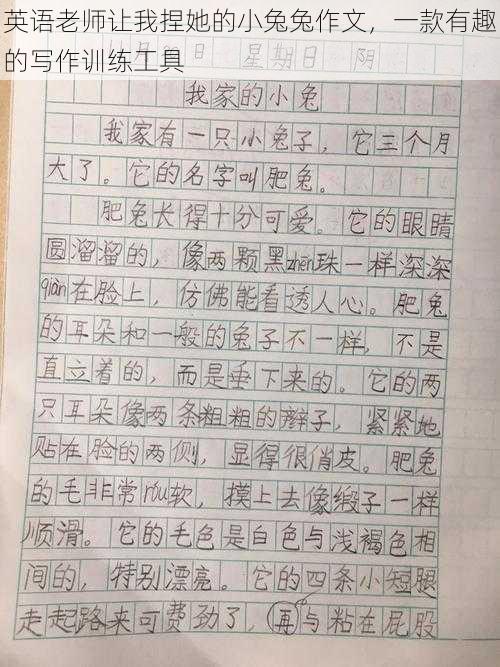 英语老师让我捏她的小兔兔作文，一款有趣
的写作训练工具
月 日 星期日 阴
我家的小兔
我家有一只小兔子，它三个月
大了。它的名字叫肥兔。
肥兔长得十分可爱。它的眼睛
圆溜溜的，像两颗黑zhēn珠一样深深
qiàn在脸上，仿佛能看透人心。肥兔
的耳朵和一般的兔子不一样，不是
直立着的，而是垂下来的。它的两
只耳朵像两条粗粗的辫子，紧紧地
贴在脸的两侧，显得很俏皮。肥兔
的毛非常róu软，摸上去像缎子一样
顺滑。它的毛色是白色与浅褐色相
间的，特别漂亮。它的四条小短腿
走起路来可费劲了，再与粘在屁股